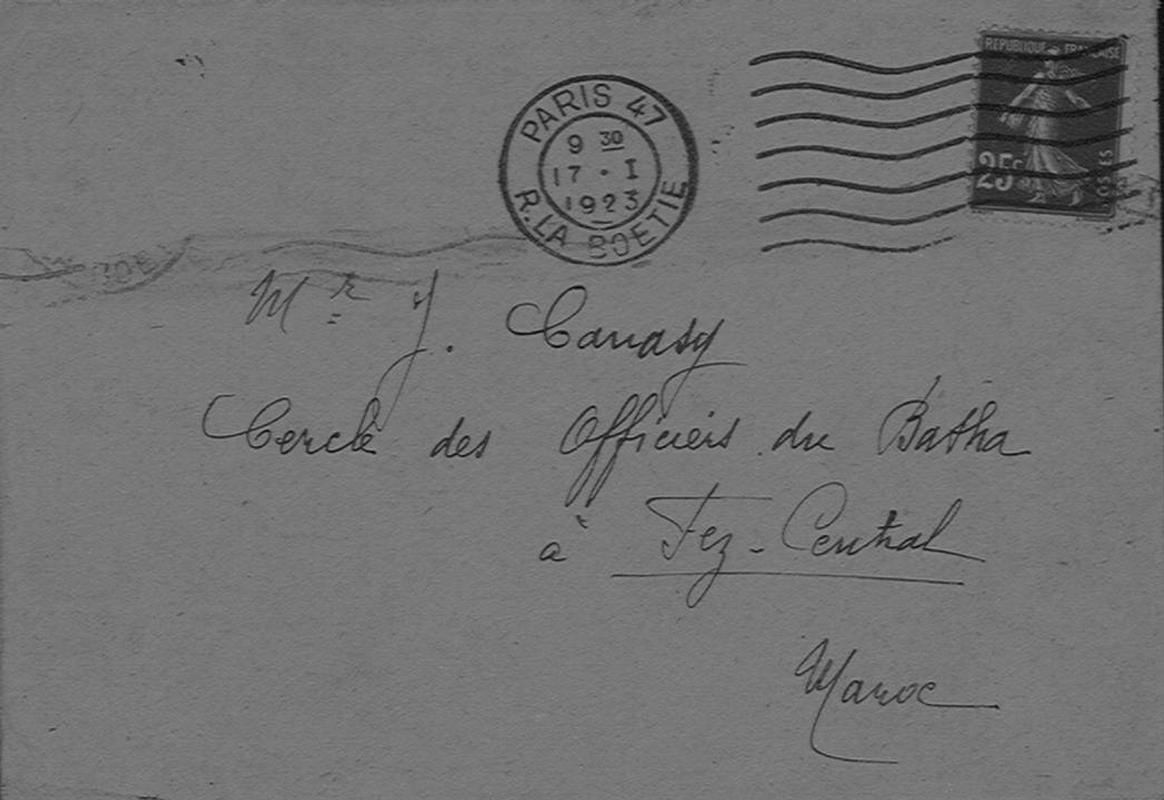 REPUBLIQUE FRANCAISE
25c
PARIS 47
9 30
17 · I
1923
R. LA BOETIE
Mr J. Canasy
Cercle des Officiers du Batha
à Fez-Central
Maroc